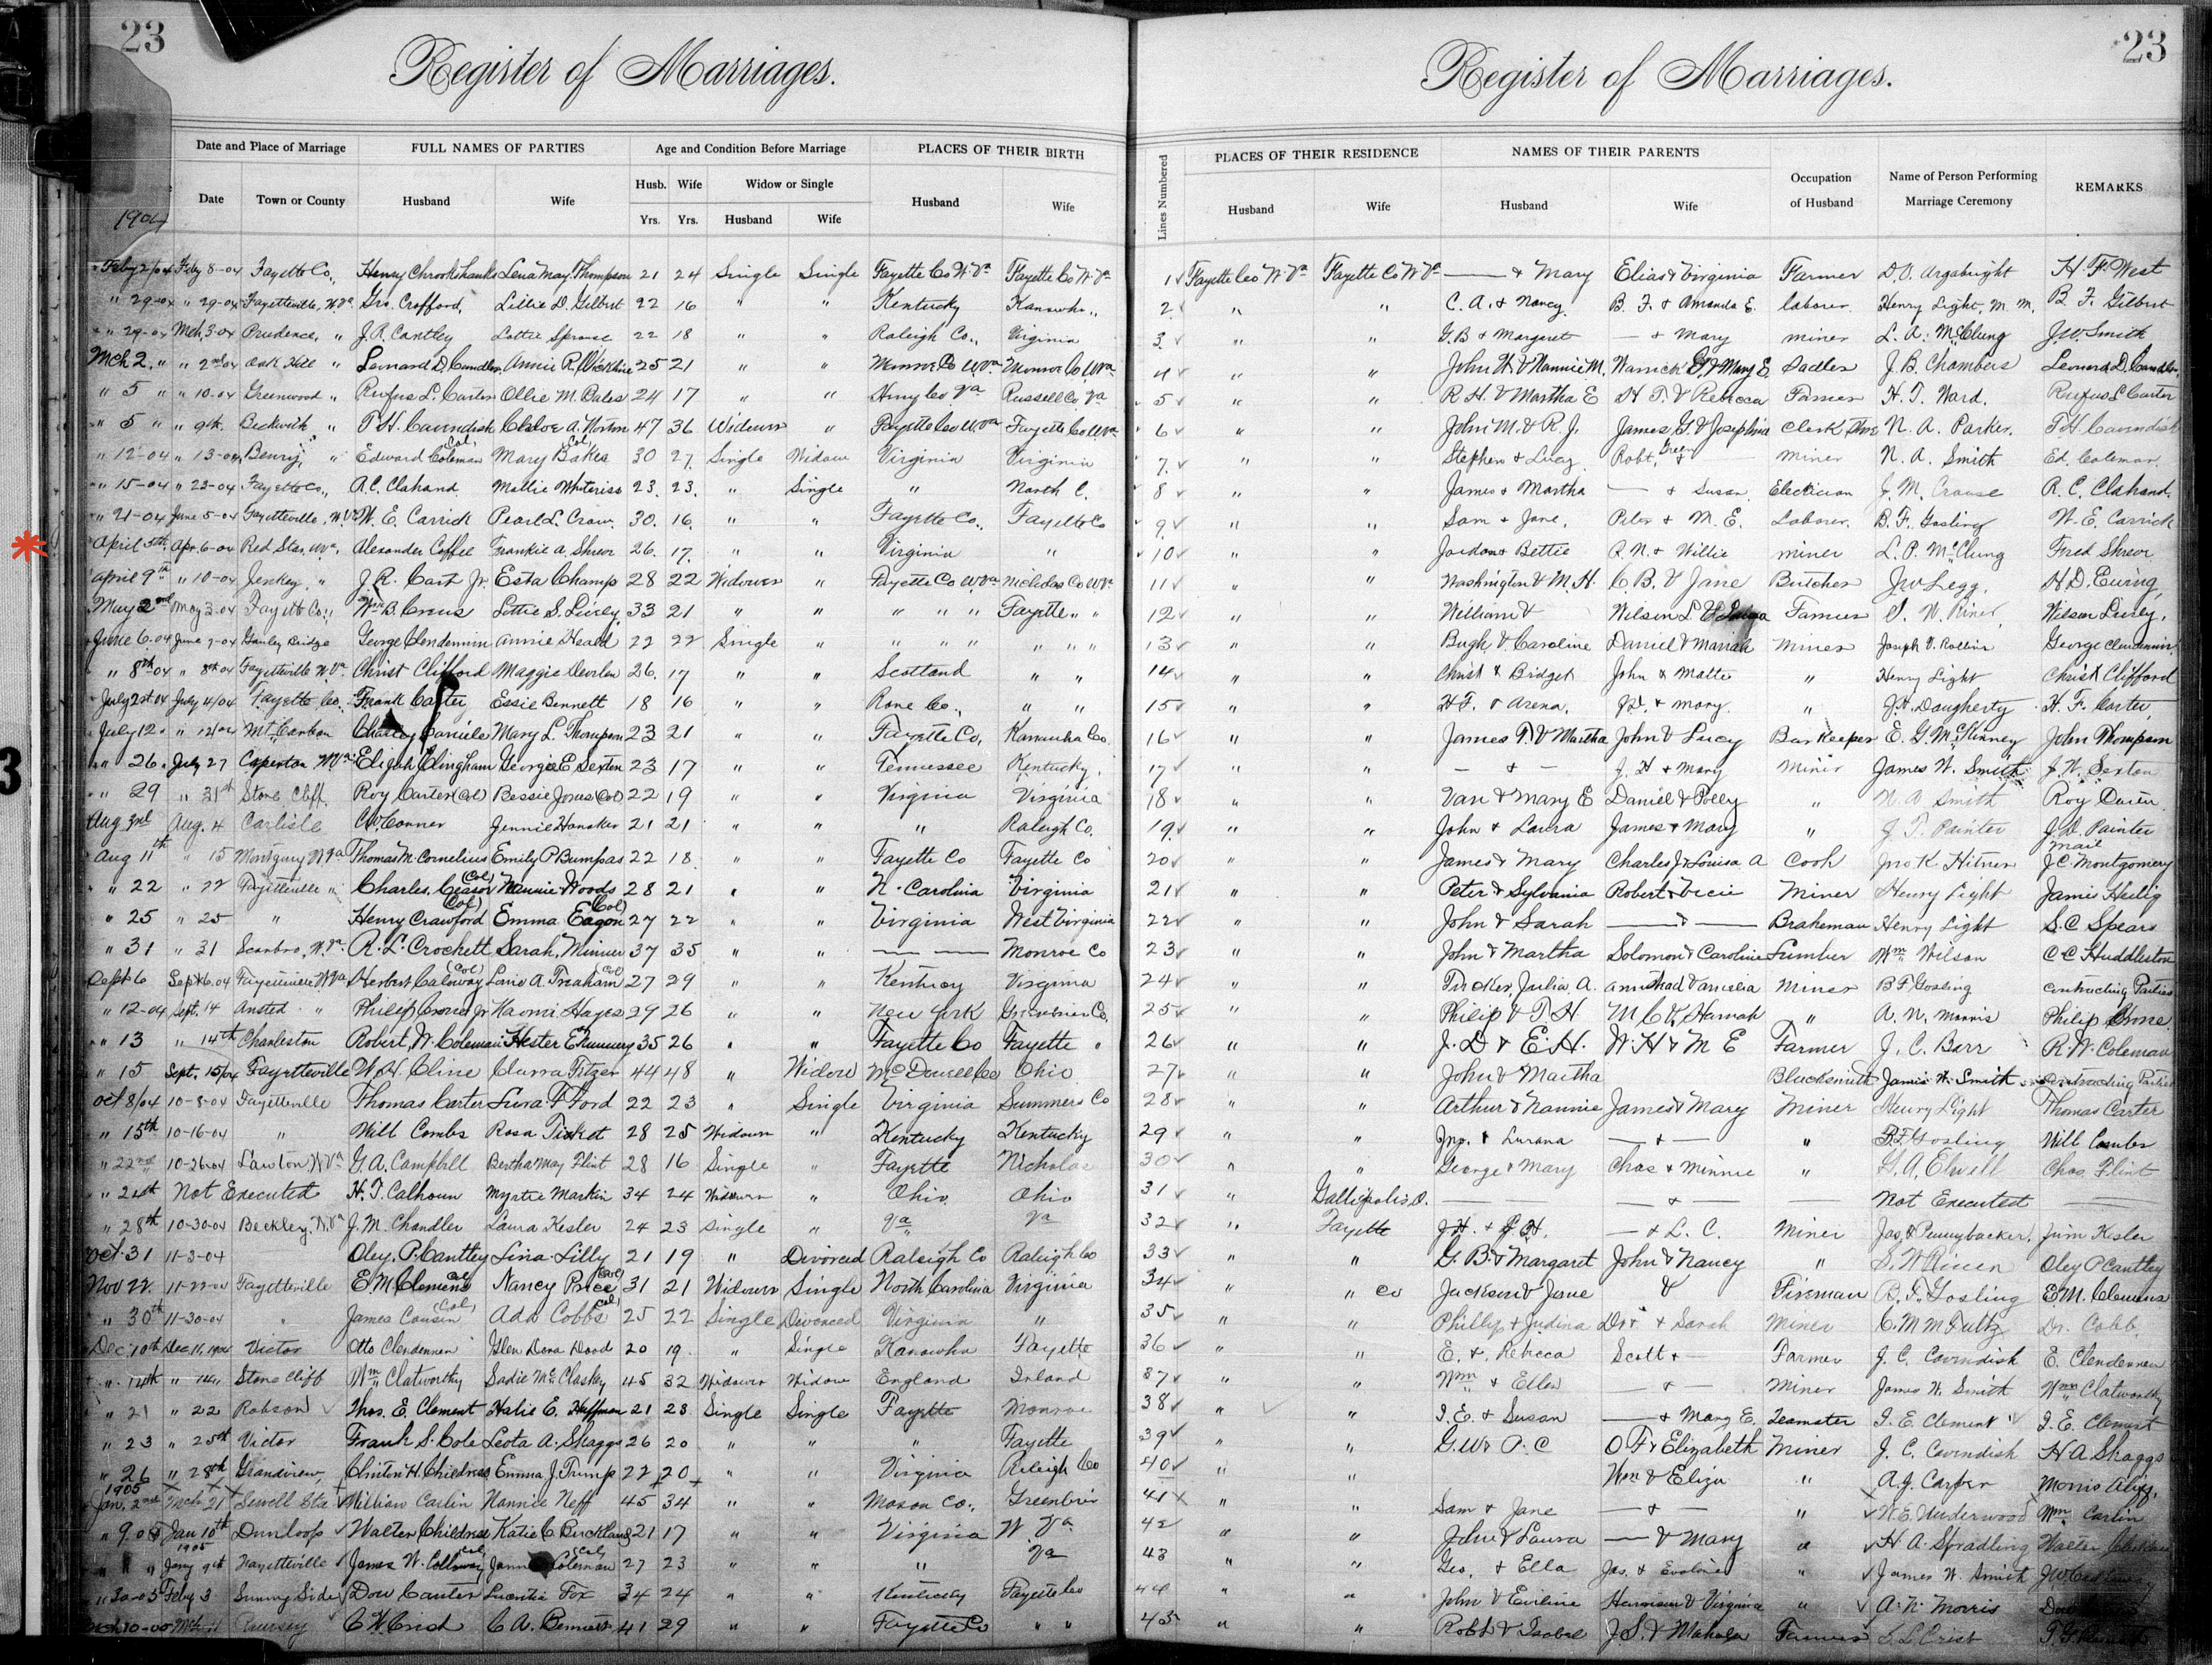 23
Register of Marriages.
Date and Place of Marriage FULL NAMES OF PARTIES Age and Condition Before Marriage PLACES OF THEIR BIRTH
Date Town or County Husband Wife Husb. Wife Widow or Single Husband Wife
Yrs. Yrs. Husband Wife
1904
Feby 2/04 Feby 8-04 Fayette Co., Henry Chrookshanks Lena May Thompson 21 24 Single Single Fayette Co W Va Fayette Co W Va
" 29-04 " 29-04 Fayetteville, W.Va. Geo. Crofford, Lillie D. Gilbert 22 16 " " Kentucky Kanawha "
" 29-04 Mch, 3-04 Prudence, " J.R. Cantley Lottie Sprouse 22 18 " " Raleigh Co., Virginia
Mch 2, " " 2nd 04 Oak Hill " Leonard D. Annie R. Wickline 25 21 " " Monroe Co W Va Monroe Co W Va
" 5 " " 10-04 Greenwood " Rufus L. Carter Ollie M. Bales 24 17 " " Henry Co Va Russell Co Va
" 5 " " 9th Beckwith " T.H. Cavendish Chloe A. Norton 47 36 Widower " Fayette Co W Va Fayette Co W Va
" 12-04 " 13-04 " Edward Coleman Col. Mary Baker Col. 30 27 Single Widow Virginia Virginia
" 15-04 " 23-04 Fayette Co., A.C. Clahand Mollie 23. 23. " Single " North C.
" 21-04 June 5-04 Fayetteville, W.Va W. E. Carrick Pearl L. Crow. 30. 16. " " Fayette Co., Fayette Co
April 5th Apr. 6-04 Red Star, W Va. Alexander Coffee Frankie A. Shrew 26. 17. " " Virginia "
April 9th " 10-04 " J. R. Cart Jr. Esta Champ 28 22 Widower " Fayette Co W Va Nicholas Co W Va
May 2nd May 3-04 Fayette Co., Wm B. Lottie S. 33 21 " " " " " Fayette " "
June 6-04 June 7-04 Gauley Bridge George Clendennin Annie Heald 22 22 Single " " " " " " "
" 8th-04 " 8th 04 Fayetteville W.Va Christ Clifford Maggie Devlin 26. 17 " " Scotland " "
July 2st 04 July 4/04 Fayette Co. Frank Carter Essie Bennett 18 16 " " Rone Co., " "
July 12. " 12/04 Mt Carbon Mary L. Thompson 23 21 " " Fayette Co, Kanawha Co.
" 26. July 27 Caperton W Va Elijah Clingham Georgie E. Sexton 23 17 " " Tennessee Kentucky,
" 29 " 31st Stone Cliff Roy Carter (Col) Bessie Jones (Col) 22 19 " " Virginia Virginia
Aug 3rd Aug. 4 Carlisle Conner Jennie Honaker 21 21 " " " Raleigh Co.
Aug 11th " 15 Montgomery W Va Thomas M. Cornelius Emily P Bumpas 22 18 " " Fayette Co Fayette Co
" 22 " 22 Fayetteville " Charles (Col) Nannie Woods 28 21 " " N. Carolina Virginia
" 25 " 25 " Henry Crawford (Col) Emma Eagon (Col) 27 22 " " Virginia West Virginia
" 31 " 31 Scarbro, W. Va. R. L. Crockett Sarah 37 35 " " — — Monroe Co
Sept 6 Sept 6.04 Fayetteville W Va Herbert Caloway (Col) A. (Col) 27 29 " " Kentucky Virginia
" 12-04 Sept. 14 Ansted " Philip Jr Naomi Hayes 29 26 " " New York Greenbrier Co.
" 13 " 14th Charleston Robert, W. Coleman Hester E. 35 26 " " Fayette Co Fayette "
" 15 Sept. 15/04 Fayetteville W. H. Cline Clarra Fitzer 44 48 " Widow McDowell Co Ohio
Oct 8/04 10-8-04 Fayetteville Thomas Carter Lura F Ford 22 23 " Single Virginia Summers Co
" 15th 10-16-04 " Will Combs Rosa 28 25 Widower " Kentucky Kentucky
" 22nd 10-26-04 Lawton, W Va G. A. Campbell Bertha May Flint 28 16 Single " Fayette Nicholas
" 24th Not Executed H. T. Calhoun Myrtie Markin 34 24 Widower " Ohio Ohio
" 28th 10-30-04 Beckley, W.Va J. M. Chandler Laura Kesler 24 23 Single " Va Va
Oct. 31 11-3-04 Oley. P. Cantley Lina Lilly 21 19 " Divorced Raleigh Co Raleigh Co
Nov 22. 11-22-04 Fayetteville E. M. Clemens Col Nancy Price (Col) 31 21 Widower Single North Carolina Virginia
" 30th 11-30-04 " James Cousin (Col) Ada Cobbs Col 25 22 Single Divorced Virginia "
Dec. 10th Dec 11, 1904 Victor Otto Clendennen Dora Dood 20 19. " Single Kanawha Fayette
" 14th " 14 Stone Cliff Wm Clatworthy Sadie McClasky 45 32 Widower Widow England Irland
" 21 " 22 Robson Thos. E. Clement Katie E. Huffman 21 23 Single Single Fayette Monroe
" 23 " 25th Victor Frank S. Cole Leota A. Skaggs 26 20 " " " Fayette
" 26 " 28th Grandview, Clinton H. Childress Emma J. Trump 22 20 " " Virginia Raleigh Co
1905
Jan. 2nd Mch 21 Sewell Sta William Carlin Nannie Neff 45 34 " " Mason Co., Greenbrier
" 9.05 Jan 10th Dunloop Walter Childress Katie C. Buckland 21 17 " " Virginia W. Va
" " 1905 Jany 9th Fayetteville James W. Colloway Col Coleman Col 27 23 " " " Va
" 30-05 Feby 3 Sunny Side Dow Canter Lucretia Fox 34 24 " " Kentucky Fayette Co
C. W. Crist C. A. Bennett 41 29 " " Fayette Co " "
23
Register of Marriages.
Lines Numbered PLACES OF THEIR RESIDENCE NAMES OF THEIR PARENTS Occupation of Husband Name of Person Performing Marriage Ceremony REMARKS
Husband Wife Husband Wife
1 Fayette Co W. Va Fayette Co W Va — & Mary Elias & Virginia Farmer D.O. Argabright H. F. West
2 " " C. A. & Nancy B. F. & Amanda E. laborer Henry Light, M. M. B. F. Gilbert
3 " " G.B & Margaret — & Mary miner L. A. McClung J.W. Smith
4 " " John W. & Nannie M. Warrick & Mary E. Sadler J. B. Chambers Leonard D.
5 " " R H. & Martha E H T. & Rebecca Farmer H. T. Ward. Rufus L Carter
6 " " John M. & R. J. James, G. & Josephine Clerk N. A. Parker. T H Cavendish
7 " " Stephen & Lucy Robt. Green & miner N. A. Smith Ed. Coleman
8 " " James & Martha — & Susan Electician J. M. Crouse R. C. Clahand.
9 " " Sam & Jane, Peter & M. E. Laborer. B. F. Gosling W. E. Carrick
10 " " Jordon & Bettie R. N. & Willie miner L. P. McClung Fred Shrew
11 " " Washington & M. H. C. B. & Jane Butcher J W Legg. H. D. Ewing,
12 " " William & Wilson L. & Farmer Wilson
13 " " Bugh & Caroline Daniel & Mariah Miner Joseph V. Rollins George Clendennin
14 " " Christ & Bridget John & Matte " Henry Light Christ Clifford
15 " " H F. & Arena. & Mary. " J. H. Dougherty H. F. Carter
16 " " James T. & Martha John & Lucy Barkeeper E. G. McKinney John Thompson
17 " " — & — J. H & Mary Miner James W. Smith J. W. Sexton
18 " " Van & Mary E Daniel & Polly " N. A Smith Roy
19 " " John & Laura James & Mary " J. T. Painter J. D. Painter
20 " " James & Mary Charles J. & Louisa A Cook Jno K. Hitner mail J. C. Montgomery
21 " " Peter & Sylvania Robert & Miner Henry Light James Heilig
22 " " John & Sarah — & — Brakeman Henry Light S. C Spears
23 " " John & Martha Solomon & Caroline Lumber Wm Wilson C C Huddleston
24 " " Tucker, Julia A. & Miner B F. Gosling contracting Parties
25 " " Philip & T H M C & Hannah " A. N. Morris Philip
26 " " J. D & E. H. W. H & M E Farmer J. C. Barr R. W. Coleman
27 " " John & Martha Blacksmith James W. Smith contracting Parties
28 " " Arthur & Nannie James & Mary Miner Henry Light Thomas Carter
29 " " Jno. & Lurana — & — " B.F. Gosling Will Combs
30 " " George & Mary Chas & Minnie " G. A. Elwell Chas. Flint
31 " Gallipolis O. — — & — Not Executed —
32 " Fayette J. H. & — & L. C. Miner Jas. Pennybacker, Jim Kesler
33 " " G. B. & Margaret John & Nancy " Oley P Cantley
34 " " Co Jackson & Jane & Fireman B. F. Gosling E.M. Clemens
35 " " Phillip & Judina & Sarah Miner C. M Cobb.
36 " " E. & Rebecca Scott & — Farmer J. C. Cavendish E. Clendennen
37 " " Wm & Ellen — & — Miner James W. Smith Wm Clatworthy
38 " " I. E. & Susan — & Mary E. Teamster I. E Clement I. E. Clement
39 " " G.W & A. C O. F & Elizabeth Miner J. C. Cavendish H A. Skaggs
40 " " Wm & Eliza " A. G. Carper Morris
41 " " Sam & Jane — & — " W. E. Underwood Wm Carlin
42 " " John & Laura — & Mary " H A. Spradling Walter
43 " " Geo. & Ella Jas. & " James W. Smith
44 " " John & Harrison & Virginia " A. N. Morris
45 " " Robt & Isabel J. S. & Mahala Farmer Crist